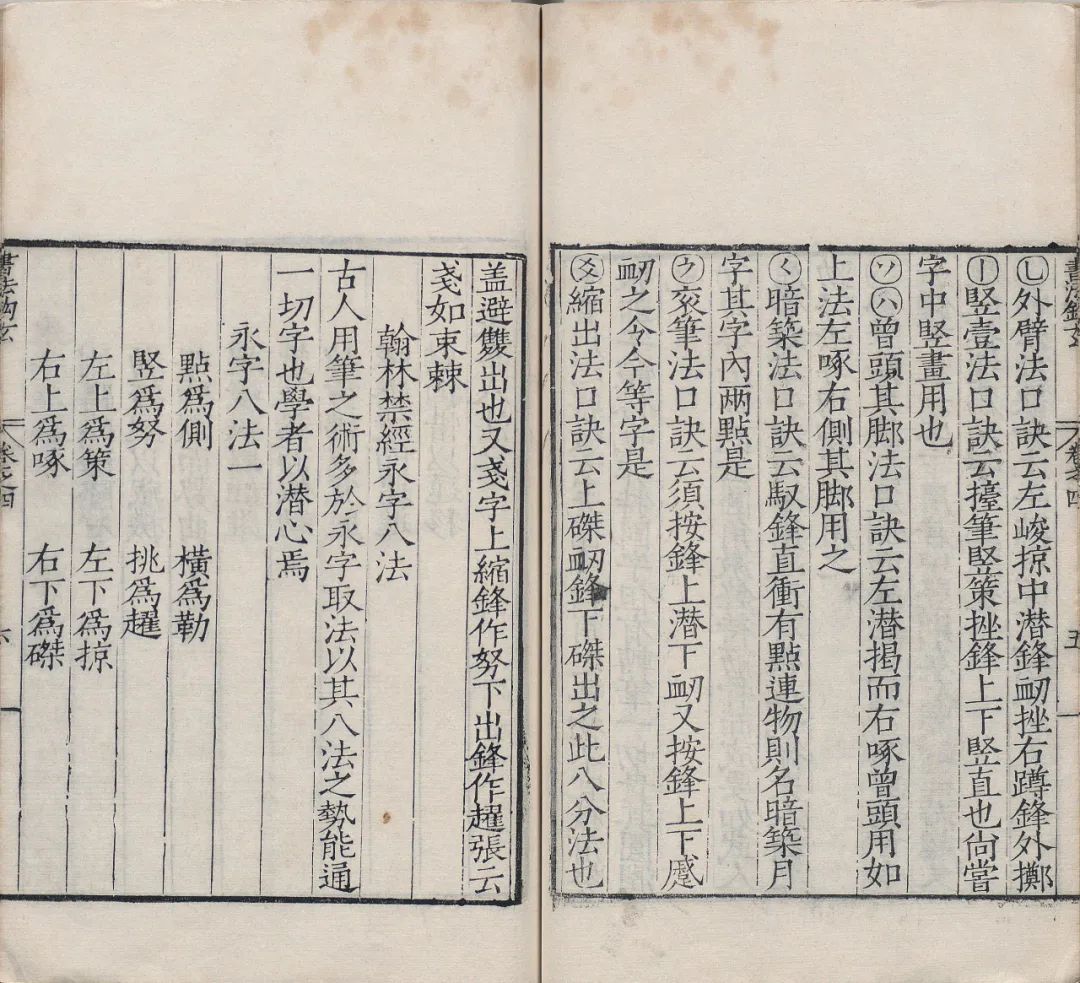 書法鉤玄
卷之四
五
㇄外臂法口訣云左峻掠中潜鋒衂挫右蹲鋒外擲
丨竖壹法口訣云擡筆竖策挫鋒上下竖直也尙嘗
字中竖畫用也
丷八曾頭其脚法口訣云左潜揭而右啄曾頭用如
上法左啄右側其脚用之
𡿨暗築法口訣云馭鋒直衝有點連物則名暗築月
字其字內两點是
ウ衮筆法口訣云須按鋒上潜下衂又按鋒上下蹙
衂之令今等字是
爻縮出法口訣云上磔衂鋒下磔出之此八分法也
盖避雙出也又戔字上縮鋒作努下出鋒作趯張云
戔如束棘
翰林禁經永字八法
古人用筆之術多於永字取法以其八法之勢能通
一切字也學者以潜心焉
永字八法一
點爲側 橫爲勒
竪爲努 挑爲趯
左上爲策 左下爲掠
右上爲啄 右下爲磔
書法鉤玄
卷之四
六